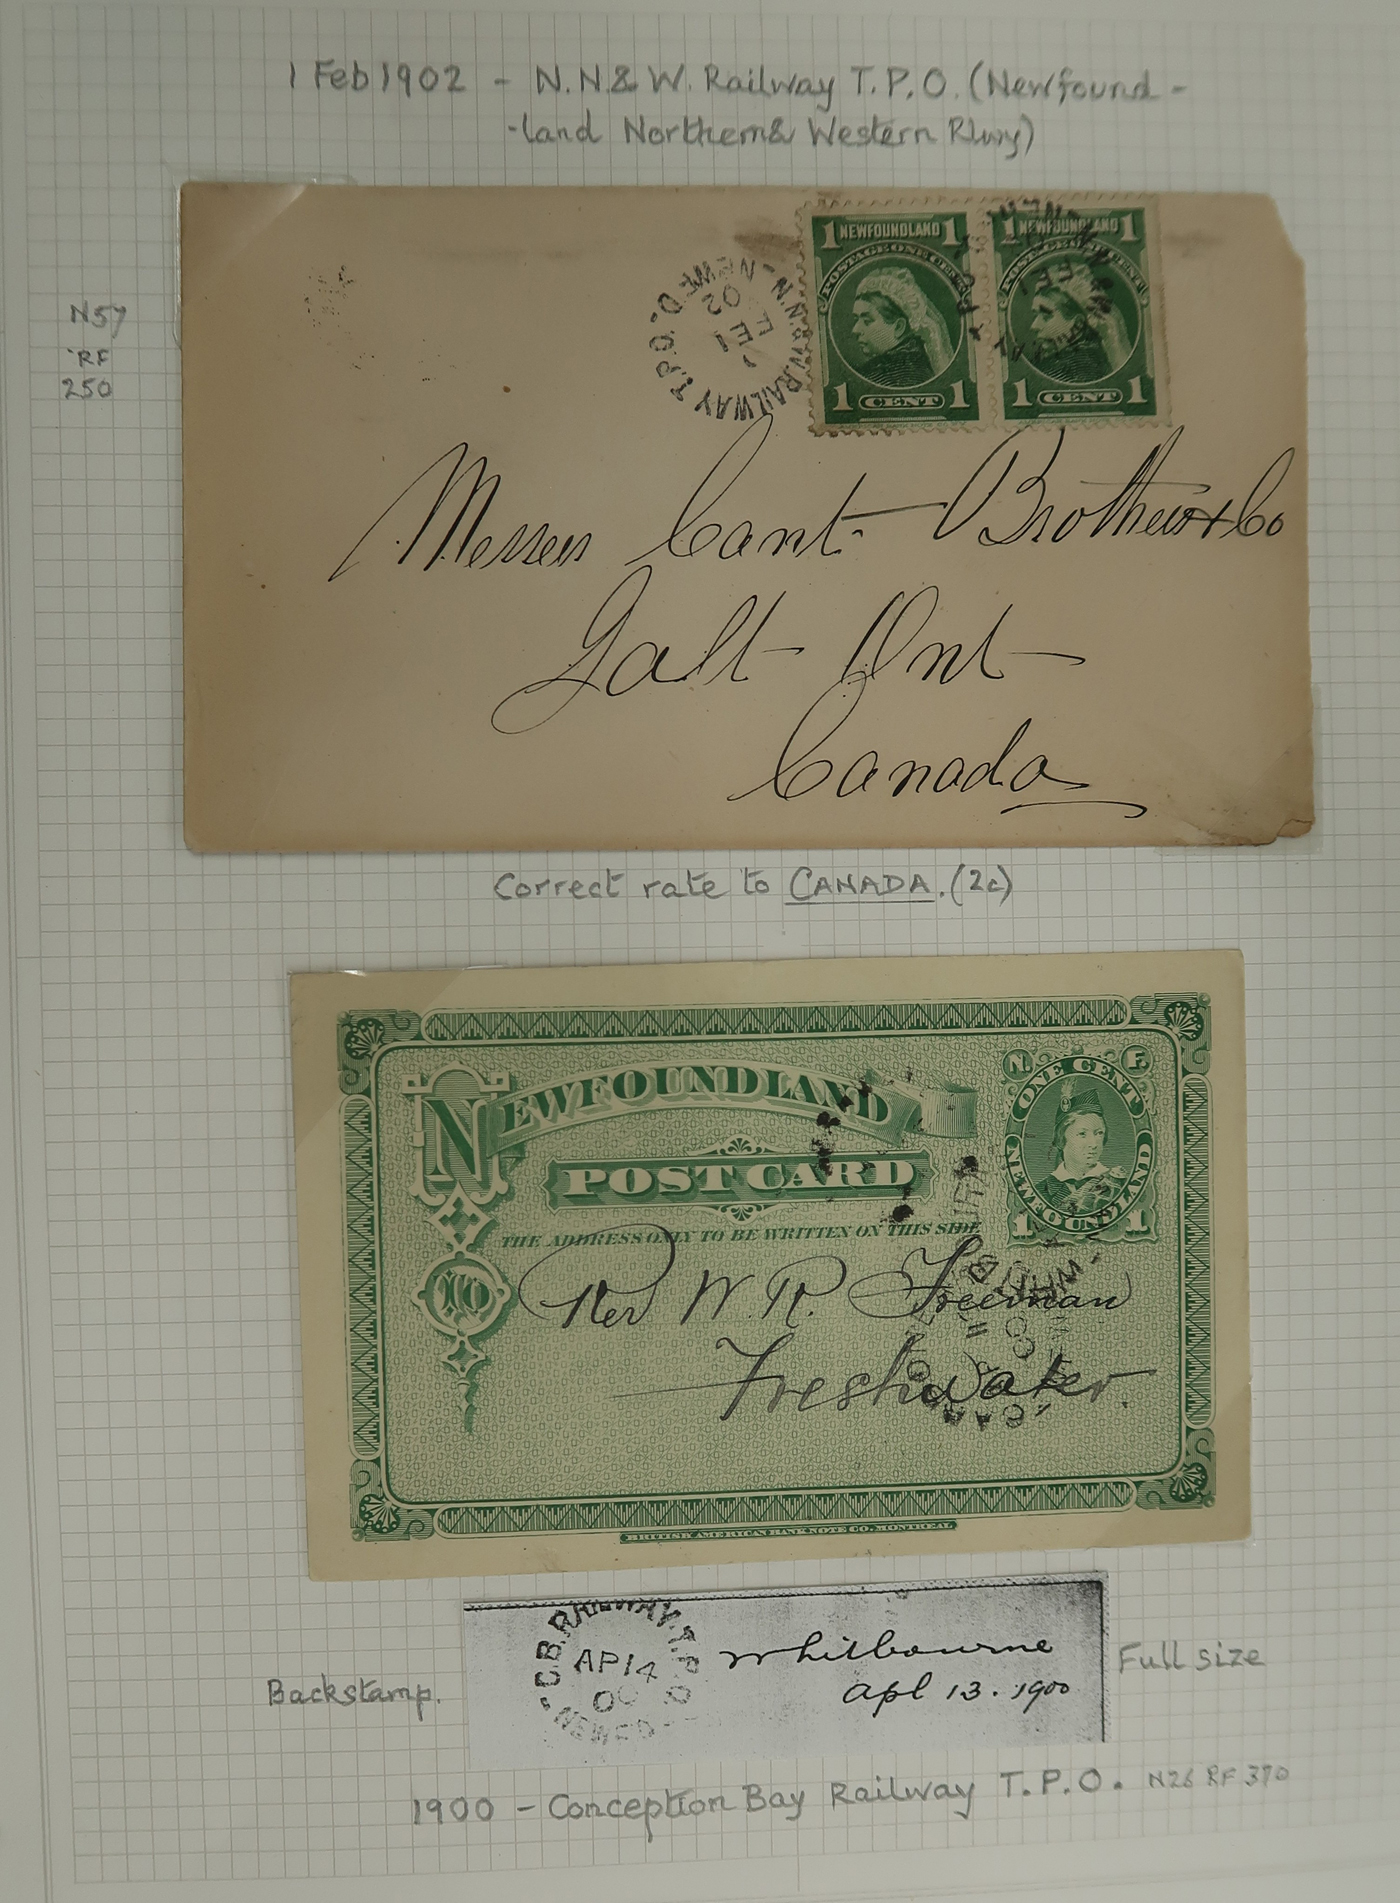 1 Feb 1902 - N.N.& W. Railway T.P.O. (Newfound-
-land Northern & Western Rlwy)
N57
RF
250
N.N.&W. RAILWAY T.P.O.
NEWF'D.
FE 1
02
1 NEWFOUNDLAND 1
POSTAGE ONE CENT
1 CENT 1
1 NEWFOUNDLAND 1
POSTAGE ONE CENT
1 CENT 1
Messrs Cant Brothers & Co
Galt Ont
Canada
Correct rate to CANADA. (2c)
NEWFOUNDLAND
POST CARD
THE ADDRESS ONLY TO BE WRITTEN ON THIS SIDE
N. F.
ONE CENT
NEWFOUNDLAND
1 1
TO
Rev W. R. Freeman
Freshwater.
BRITISH AMERICAN BANK NOTE CO. MONTREAL
C.B. RAILWAY. T.P.O.
AP 14
00
Whitbourne
Apl 13. 1900
Backstamp.
Full size
1900 - Conception Bay Railway T.P.O. N26 RF 370